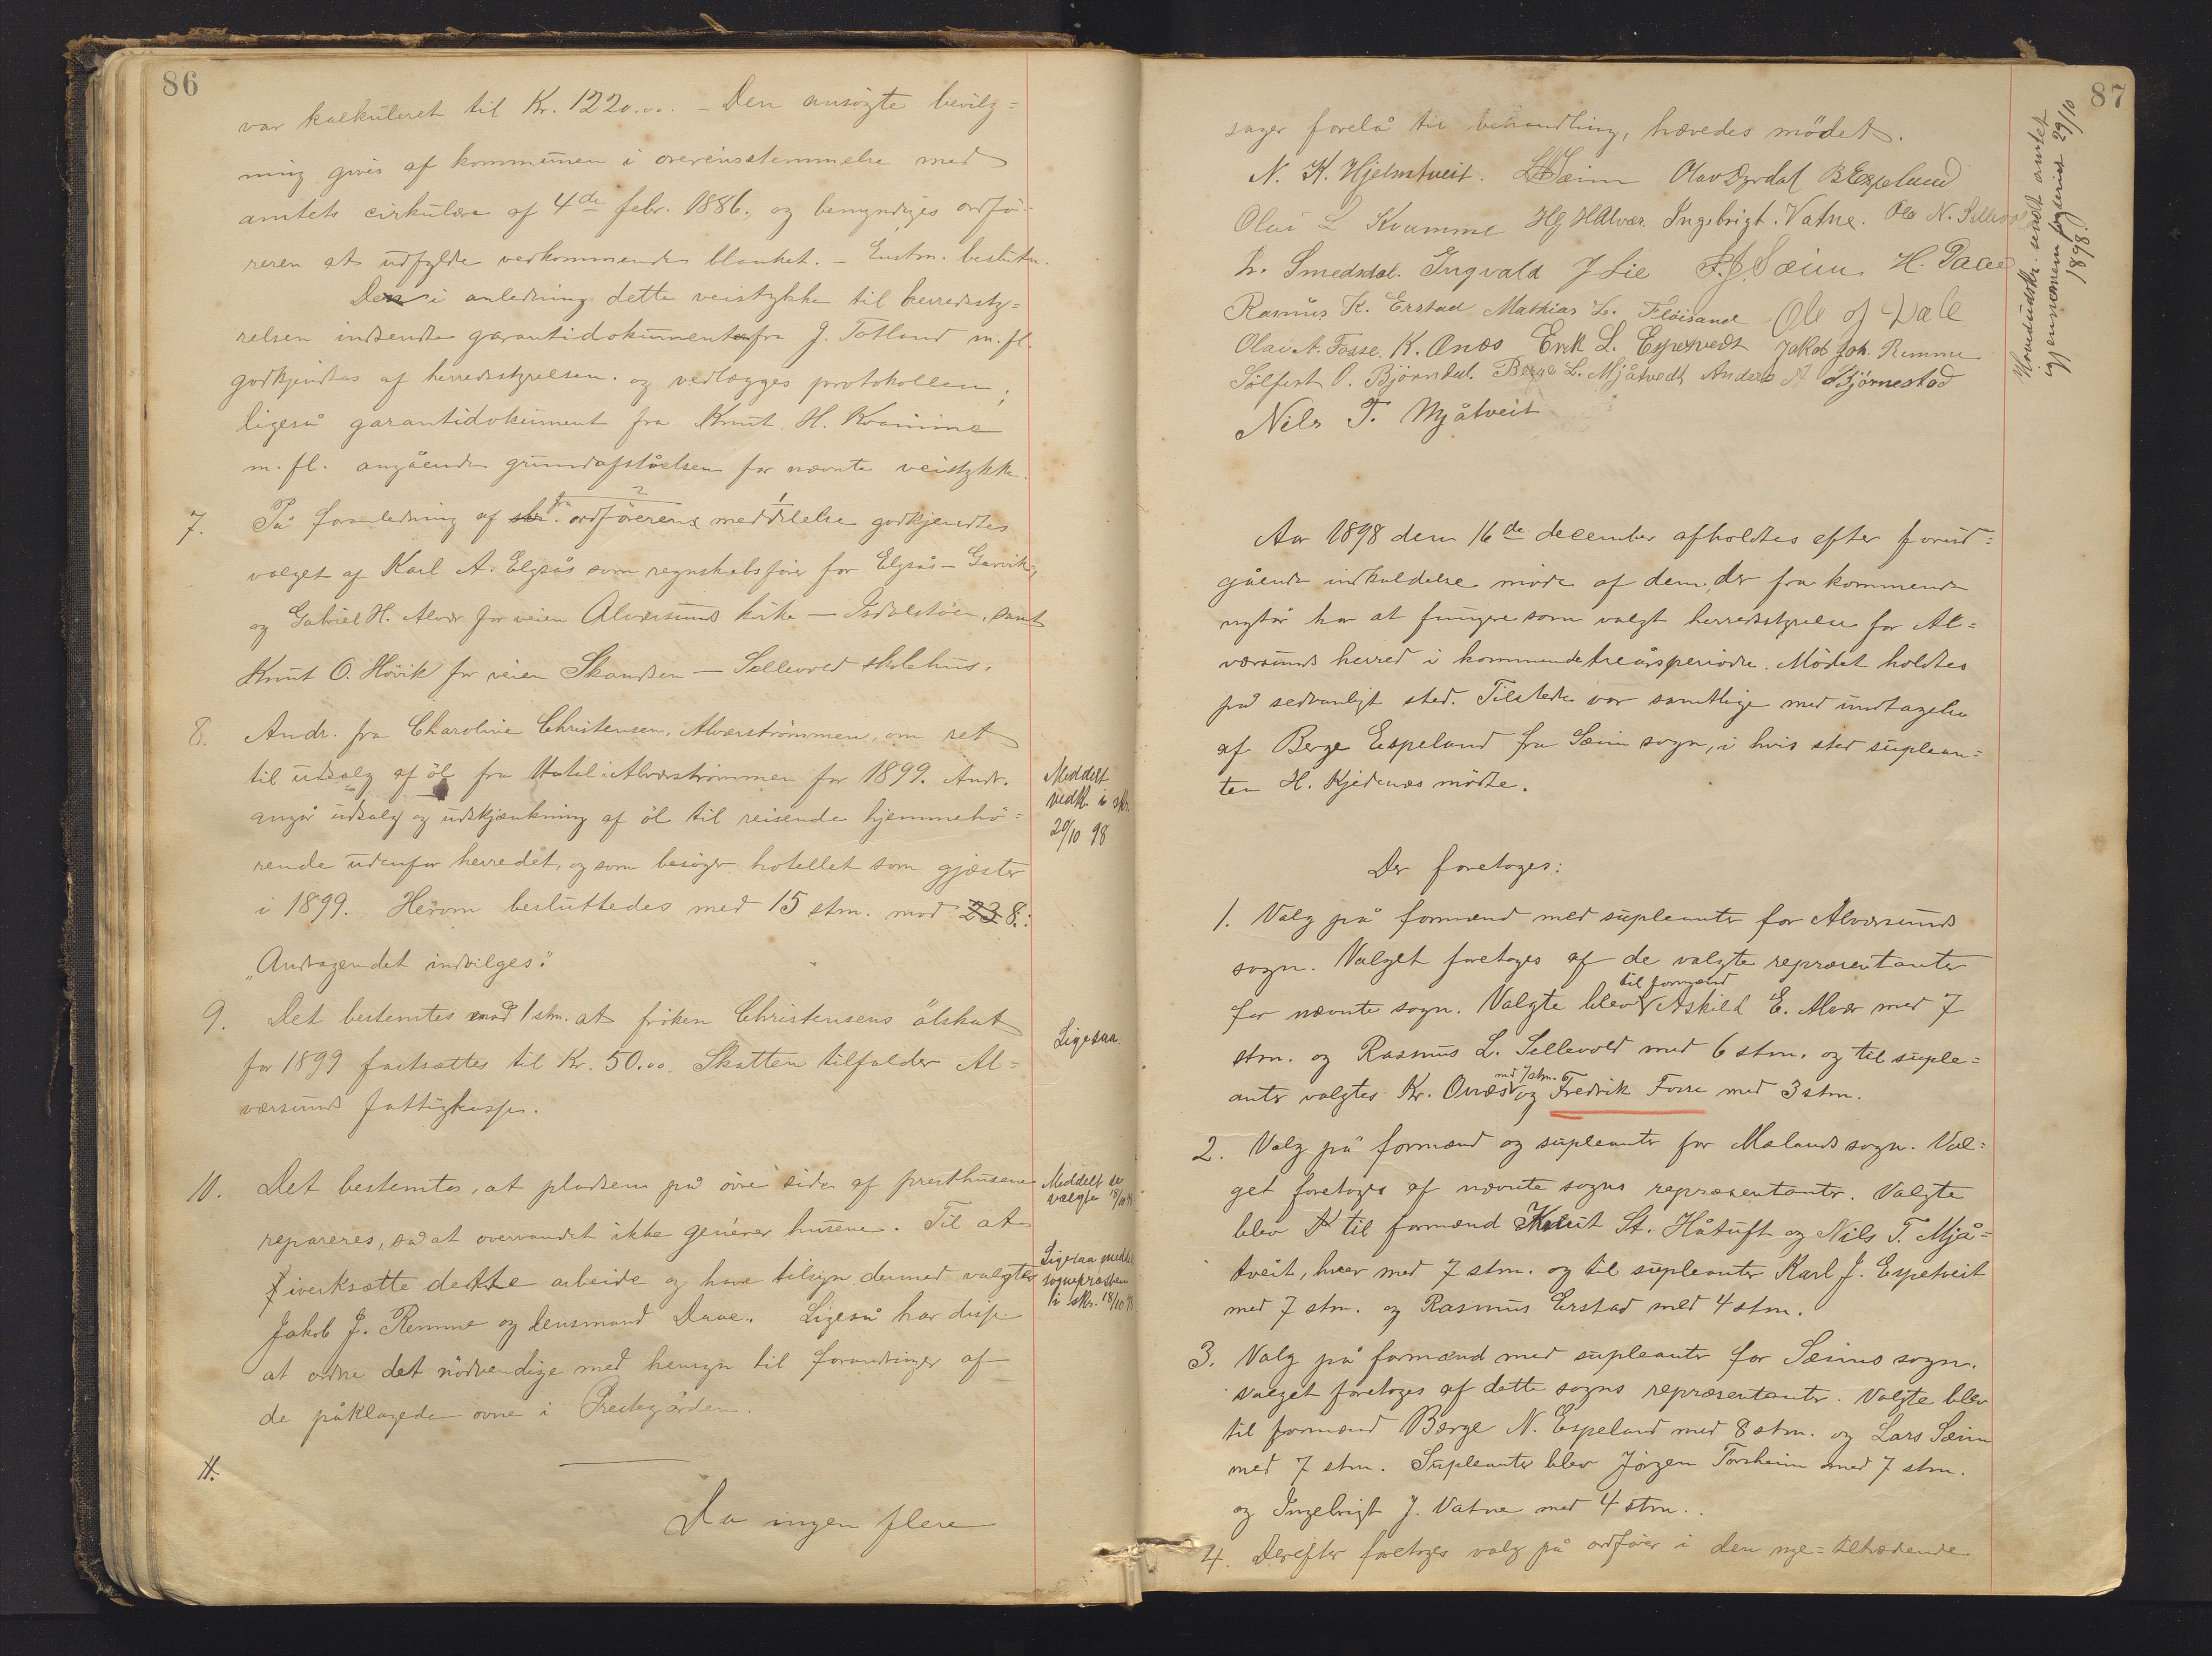 86
var kalkuleret til Kr. 1220.00. – Den ansögte bevilg=
ning gives af kommunen i overensstemmelse med
amtets cirkulære af 4de febr. 1886, og bemyndiges ordfö-
reren at udfylde vedkommende blanket. – Enstm. beslutn.
Den i anledning dette veistykke til herredssty=
relsen indsendte garantidokument fra J. Totland m. fl.
godkjendtes af herredsstyrelsen. og vedlægges protokollen;
ligeså garantidokument fra Knut H. Kvamme
m. fl. angående grundafståelsen for nævnte veistykke.
7. På foranledning af skr. fra ordförerens meddelelse godkjendtes
valget af Karl A. Elgsås som regnskabsförer for Elgsås – Garvik,
og Gabriel H. Alvær for veien Alværsunds kirke – Isdalstöen, samt
Knut O. Hövik for veien Skaudsen – Sellevold skolehus.
8. Andr. fra Charoline Christensen, Alværströmmen, om ret
til udsalg af öl fra Hotel Alværströmmen for 1899. Andr.
angår udsalg og udskjænkning af öl til reisende hjemmehö=
rende udenfor herredet, og som besöger hotellet som gjæster
i 1899. Herom besluttedes med 15 stm. mod 23 8.:
„Andragendet indvilges."
Meddelt
vedk. i skr.
20/10 98
9. Det bestemtes mod 1 stm. at fröken Christensens ölskat
for 1899 fastsættes til Kr. 50.00. Skatten tilfalder Al=
værsunds fattigkasse.
Ligesaa.
10. Det bestemtes, at pladsen på övre side af presthusene
repareres, så at overvandet ikke generer husene. Til at
iverksætte dette arbeide og have tilsyn dermed valgtes
Jakob J. Remme og lensmand Daae. Ligeså har disse
at ordne det nödvendige med hensyn til forandringer af
de påklagede ovne i Prestegården.
Meddelt de
valgte 18/10 98
Ligesaa meddelt
sognepresten
i skr. 18/10 98
11.
Da ingen flere
87
sager forelå til behandling, hævedes mödet.
N. K. Hjelmtveit. L Sæim Olav Dyrdal B Espelund
Olai L Kvamme Hg H Alvær. Ingebrigt. Vatne. Ola N. Sellevold
L. Smedsdal. Ingvald J Lie F. J. Sæim H. Daae
Rasmus K. Erstad Mathias L. Flöisand Ole J Dale
Olai A. Fosse. K. Onæs Erik L. Espetvedt Jakob Joh. Remme
Sölfest O. Björndal. Berge L. Mjåtvedt Anders A Björnestad
Nils T. Mjåtveit
Hovedudskr. sendt amtet
igjennem fogderiet 29/10
1898.
Aar 1898 den 16de december afholdtes efter forud=
gående indkaldelse möde af dem, der fra kommende
nytår har at fungere som valgt herredsstyrelse for Al=
værsunds herred i kommende treårsperiode. Mödet holdtes
på sedvanligt sted. Tilstede var samtlige med undtagelse
af Berge Espeland fra Sæim sogn, i hvis sted suplean=
ten H. Kjedenæs mödte.
Der foretoges:
1. Valg på formænd med supleanter for Alværsunds
sogn. Valget foretoges af de valgte repræsentanter
for nævnte sogn. Valgte blev til formænd Askild E. Alvær med 7
stm. og Rasmus L. Sellevold med 6 stm. og til suple=
anter valgtes Kr. Onæs med 7 stm. og Fredrik Fosse med 3 stm.
2. Valg på formænd og supleanter for Mælands sogn. Val=
get foretoges af nævnte sogns repræsentanter. Valgte
blev til formænd Knut St. Håtuft og Nils T. Mjå=
tveit, hver med 7 stm. og til supleanter Karl J. Espetveit
med 7 stm. og Rasmus Erstad med 4 stm.
3. Valg på formænd med supleanter for Sæims sogn.
Valget foretoges af dette sogns repræsentanter. Valgte blev
til formænd Berge N. Espeland med 8 stm. og Lars Sæim
med 7 stm. Supleanter blev Jörgen Torsheim med 7 stm.
og Ingebrigt J. Vatne med 4 stm.
4. Derefter foretoges valg på ordförer i den nye=tiltrædende